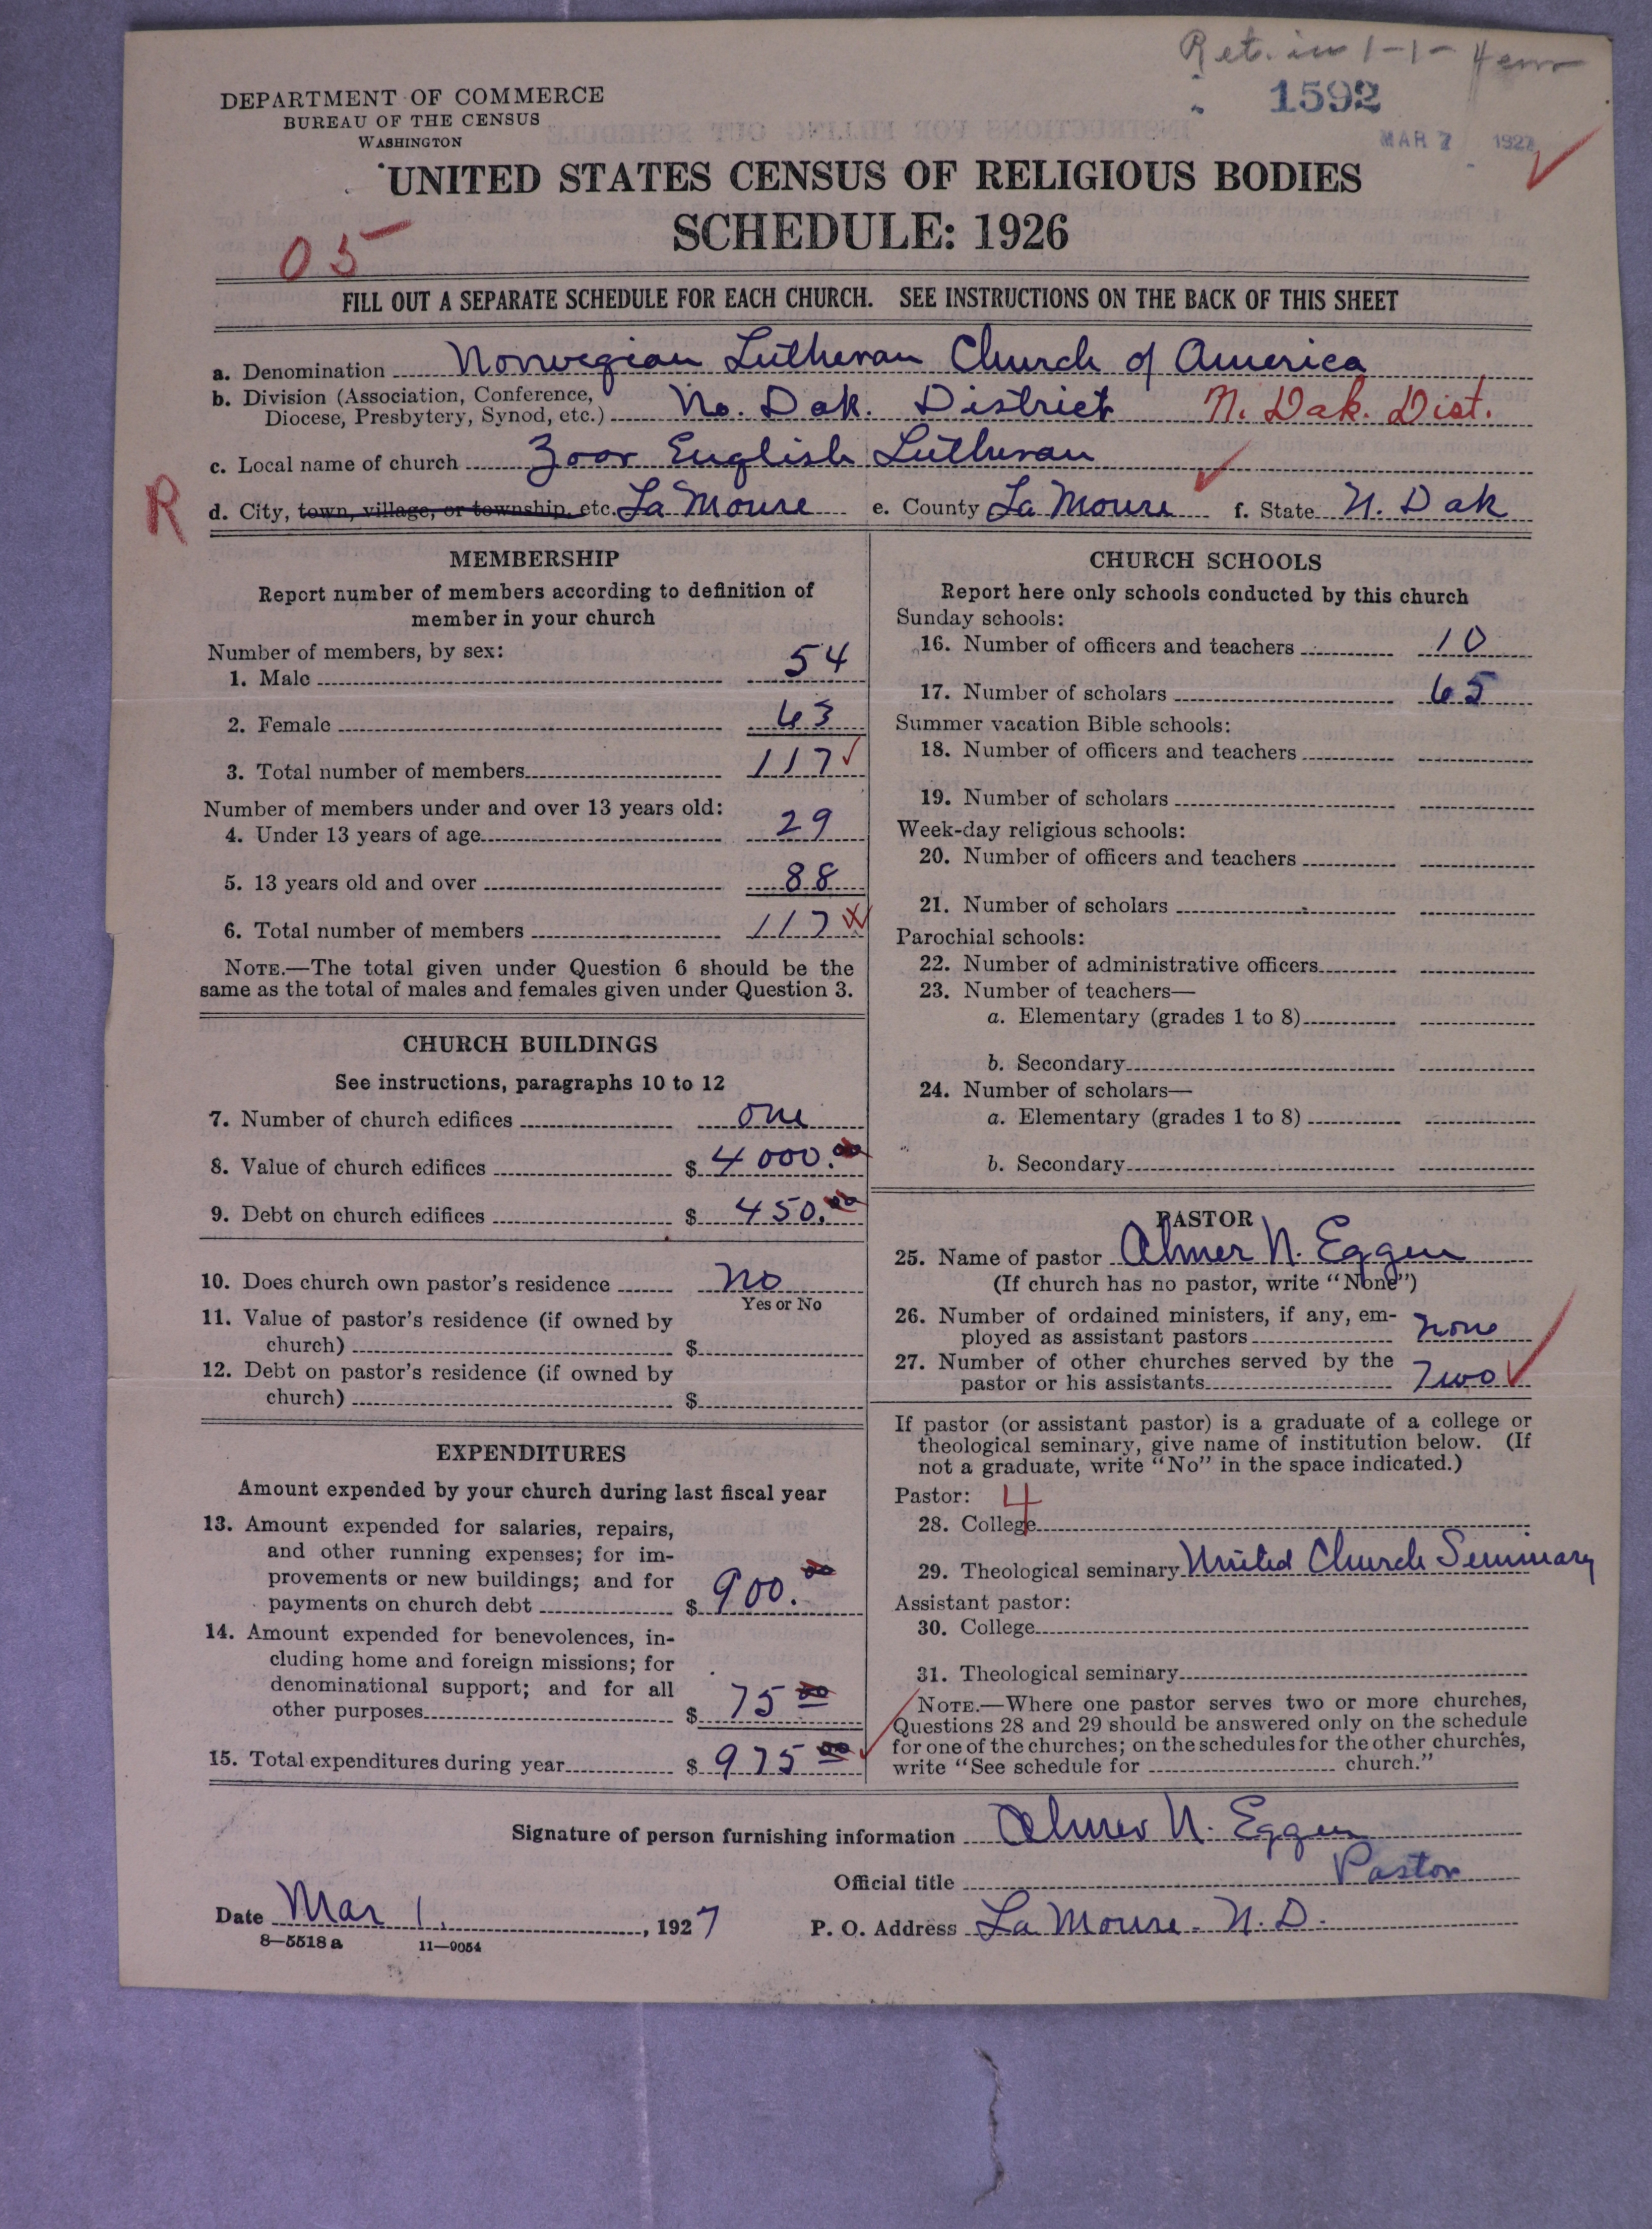 Ret. in 1-1-
1592
MAR 7 1927
DEPARTMENT OF COMMERCE
BUREAU OF THE CENSUS
WASHINGTON
UNITED STATES CENSUS OF RELIGIOUS BODIES
SCHEDULE: 1926
05
FILL OUT A SEPARATE SCHEDULE FOR EACH CHURCH. SEE INSTRUCTIONS ON THE BACK OF THIS SHEET
a. Denomination Norwegian Lutheran Church of America
b. Division (Association, Conference,
Diocese, Presbytery, Synod, etc.) No. Dak. District N. Dak. Dist.
c. Local name of church Zoar English Lutheran
R
d. City, town, village, or township, etc. La Moure e. County La Moure f. State N. Dak
MEMBERSHIP
Report number of members according to definition of
member in your church
Number of members, by sex:
1. Male 54
2. Female 63
3. Total number of members 117
Number of members under and over 13 years old:
4. Under 13 years of age 29
5. 13 years old and over 88
6. Total number of members 117
NOTE.—The total given under Question 6 should be the
same as the total of males and females given under Question 3.
CHURCH BUILDINGS
See instructions, paragraphs 10 to 12
7. Number of church edifices one
8. Value of church edifices $ 4000.00
9. Debt on church edifices $ 450.00
10. Does church own pastor's residence No
Yes or No
11. Value of pastor's residence (if owned by
church) $
12. Debt on pastor's residence (if owned by
church) $
EXPENDITURES
Amount expended by your church during last fiscal year
13. Amount expended for salaries, repairs,
and other running expenses; for im-
provements or new buildings; and for
payments on church debt $ 900.00
14. Amount expended for benevolences, in-
cluding home and foreign missions; for
denominational support; and for all
other purposes $ 75 00
15. Total expenditures during year $ 975 00
CHURCH SCHOOLS
Report here only schools conducted by this church
Sunday schools:
16. Number of officers and teachers 10
17. Number of scholars 65
Summer vacation Bible schools:
18. Number of officers and teachers
19. Number of scholars
Week-day religious schools:
20. Number of officers and teachers
21. Number of scholars
Parochial schools:
22. Number of administrative officers
23. Number of teachers—
a. Elementary (grades 1 to 8)
b. Secondary
24. Number of scholars—
a. Elementary (grades 1 to 8)
b. Secondary
PASTOR
25. Name of pastor Almer N. Eggen
(If church has no pastor, write "None")
26. Number of ordained ministers, if any, em-
ployed as assistant pastors none
27. Number of other churches served by the
pastor or his assistants Two
If pastor (or assistant pastor) is a graduate of a college or
theological seminary, give name of institution below. (If
not a graduate, write "No" in the space indicated.)
Pastor: 4
28. College
29. Theological seminary United Church Seminary
Assistant pastor:
30. College
31. Theological seminary
NOTE.—Where one pastor serves two or more churches,
Questions 28 and 29 should be answered only on the schedule
for one of the churches; on the schedules for the other churches,
write "See schedule for church."
Signature of person furnishing information Almer N. Eggen
Official title Pastor
Date Mar 1, 1927 P. O. Address La Moure - N. D.
8—5518 a 11—9054